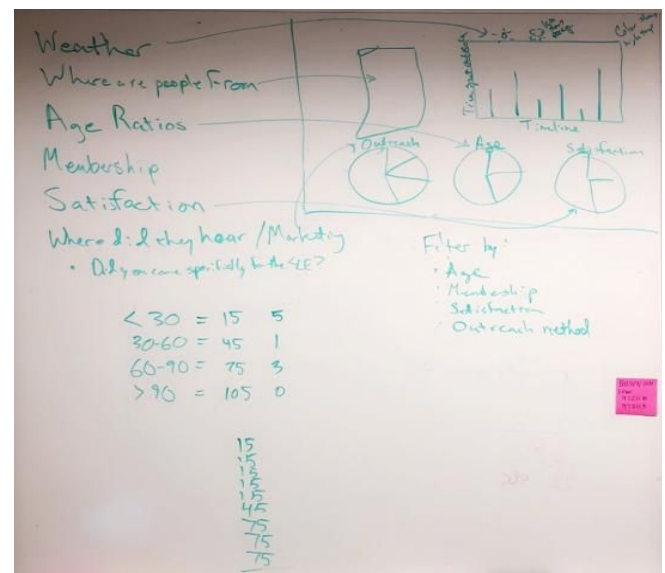 Weather
Where are people From
Age Ratios
Membership
Satisfaction
Where did they hear / Marketing
• Did you come specifically for the SLE?
< 30 = 15 5
30-60 = 45 1
60-90 = 75 3
> 90 = 105 0
15
15
15
15
15
45
75
75
75
Timeline
Outreach
Age
Satisfaction
Filter by:
• Age
• Membership
Satisfaction
Outreach method